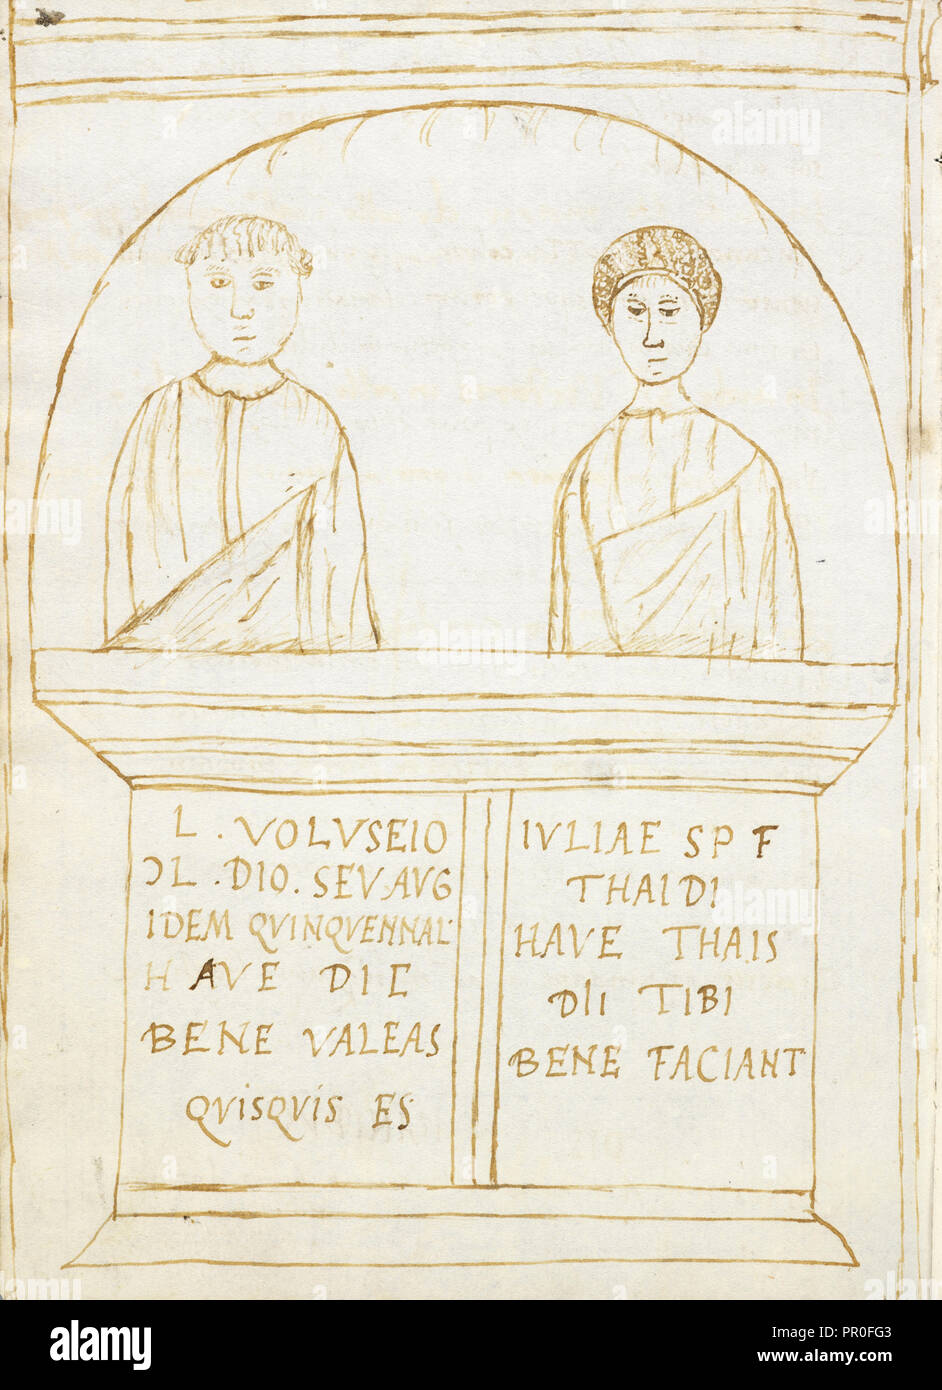 L. VOLVSEIO
ƆL. DIO. SEV. AVG
IDEM QVINQVENNAL
HAVE DIE
BENE VALEAS
QVISQVIS ES
IVLIAE SP F
THAIDI
HAVE THAIS
DII TIBI
BENE FACIANT
alamy
Image ID: PR0FG3
www.alamy.com